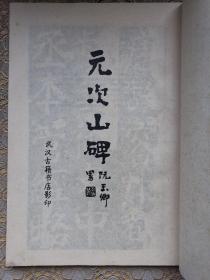 元次山碑
阮玉卿
署
武汉古籍书店影印